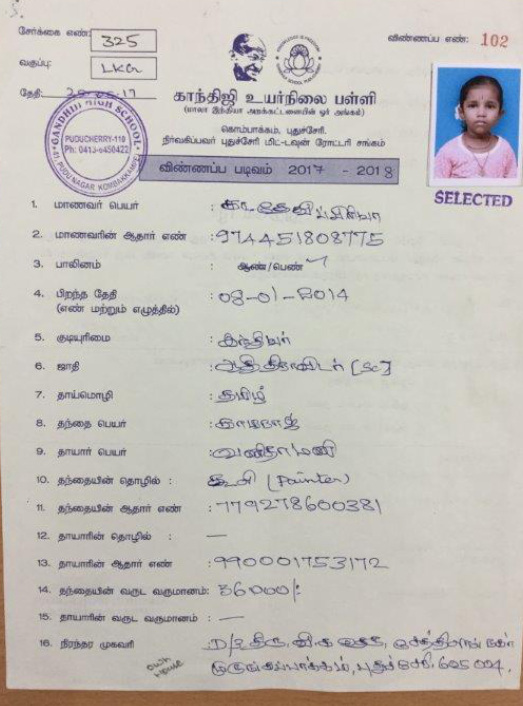 சேர்க்கை எண்: 325
விண்ணப்ப எண்: 102
வகுப்பு: LKG
தேதி:
காந்திஜி உயர்நிலை பள்ளி
(பாலா இந்தியா அறக்கட்டளையின் ஓர் அங்கம்)
கொம்பாக்கம், புதுச்சேரி.
நிர்வகிப்பவர் புதுச்சேரி மிட-டவுன் ரோட்டரி சங்கம்
GANDHIJI HIGH SCHOOL
PUDUCHERRY-110
Ph: 0413-6450422
விண்ணப்ப படிவம் 2017 - 2018
SELECTED
1. மாணவர் பெயர் :
2. மாணவரின் ஆதார் எண் : 974451808775
3. பாலினம் : ஆண்/பெண் ✓
4. பிறந்த தேதி : 08-01-2014
(எண் மற்றும் எழுத்தில்)
5. குடியுரிமை : இந்தியர்
6. ஜாதி : ஆதிதிராவிடர் [SC]
7. தாய்மொழி : தமிழ்
8. தந்தை பெயர் : காமராஜ்
9. தாயார் பெயர் :
10. தந்தையின் தொழில் : கூலி (Painter)
11. தந்தையின் ஆதார் எண் : 779278600381
12. தாயாரின் தொழில் : —
13. தாயாரின் ஆதார் எண் : 990001753172
14. தந்தையின் வருட வருமானம்: 36000/-
15. தாயாரின் வருட வருமானம் : —
16. நிரந்தர முகவரி
முருங்கப்பாக்கம், புதுச்சேரி. 605 004.
own House